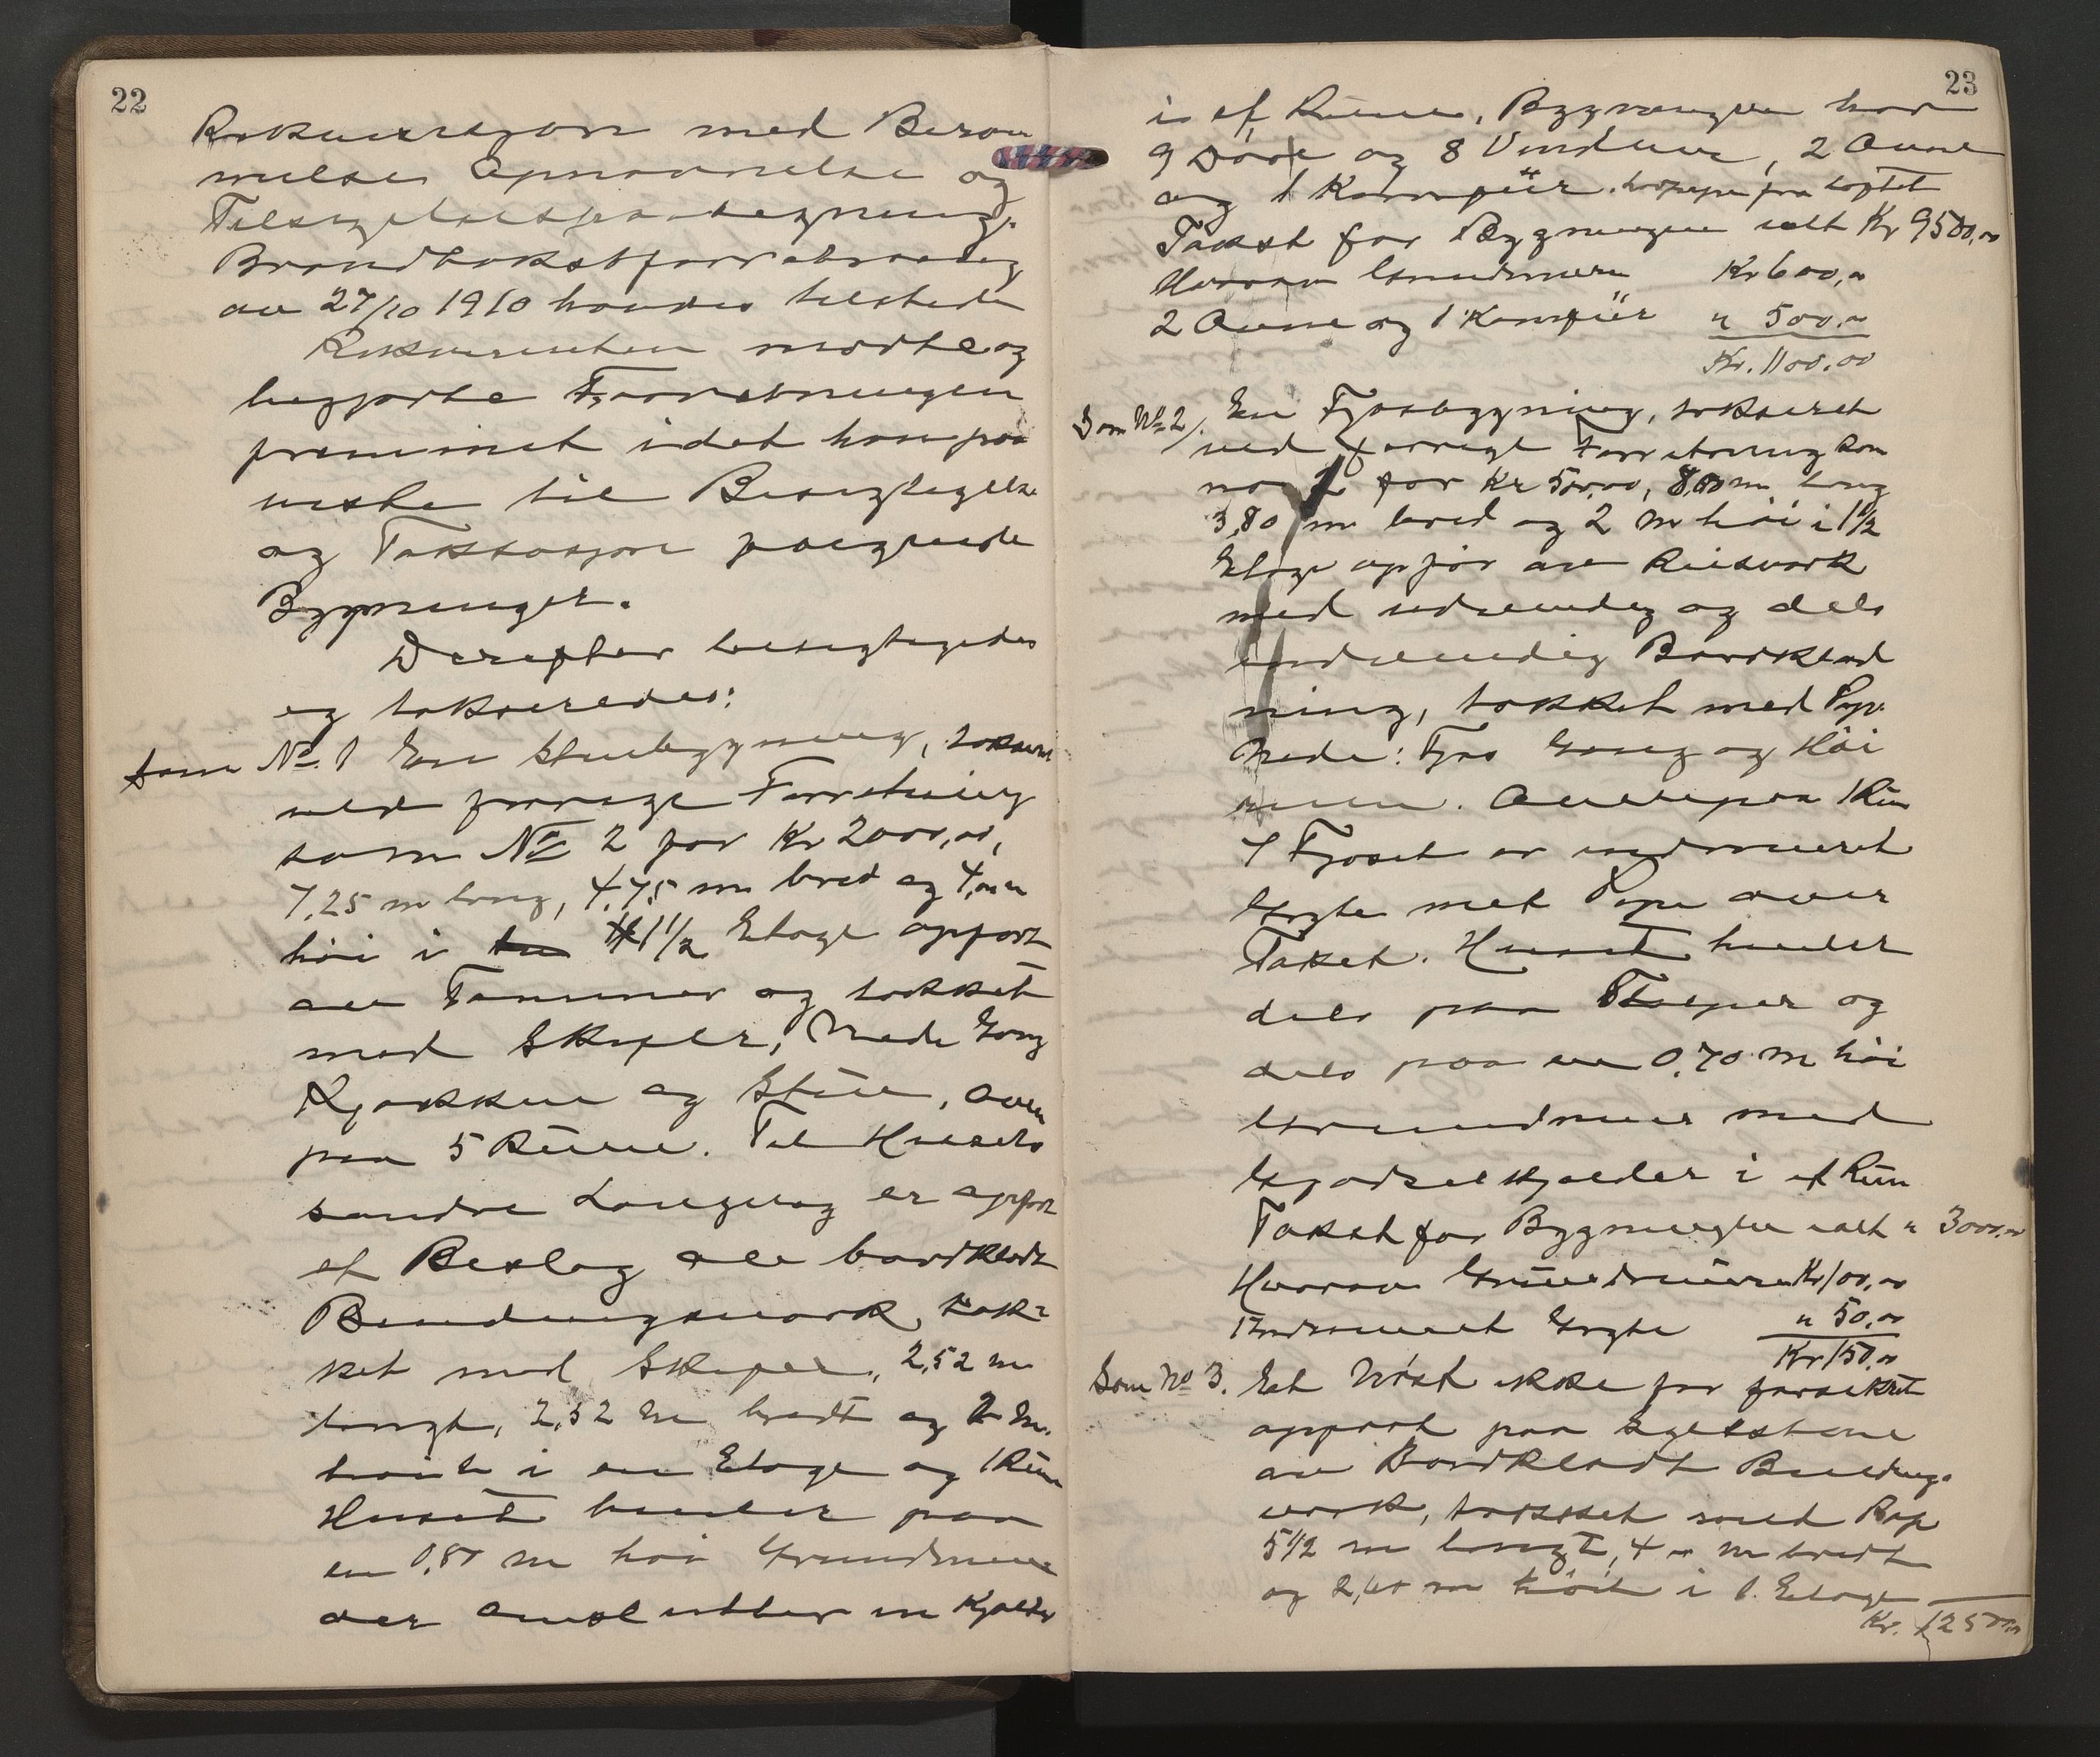 22
Rekvisisjon med Beram
melse Opnævnelse og
Tilsigelsespaategning.
Brandtakstforretning
av 27/10 1910 havdes tilstede
Rekvirenten mødte og
begjærte Forretningen
fremmet idet han paa
viste til Besigtigelse
og Taksasjon følgende
Bygninger.
Derefter besigtigedes
og takseredes:
Som No. 1 En Stuebygning, takseret
ved forrige Forretning
som No 2 for Kr 2000,00,
7,25 m lang, 4,75 m bred og 4,00 m
høi i 1 1/2 Etage opført
av Tømmer og tækket
med Skifer, Nede Gang
Kjøkken og Stue, oven
paa 5 Rum. Til Husets
søndre Langvæg er opført
et Beslag av bordklædt
Bindingsverk, tæk-
ket med Skifer, 2,52 m
langt, 2,52 m bredt og 2 m.
høit i en Etage og 1 Rum
Huset hviler paa
en 0,80 m høi Grundmur
der omslutter en Kjelder
23
i et Rum, Bygningen har
9 Døre og 8 Vinduer, 2 Ovne
og 1 Komfür. fra Loftet
Takst for Bygningen ialt Kr 9500,00
Hvorav Grundmuren Kr 600,00
2 Ovne og 1 Komfür " 500,00
Kr. 1100,00
Som No 2/. En Fjøsbygning, takseret
ved forrige Forretning som
no 1 for Kr 500,00, 8,00 m lang
3,80 m bred og 2 m høi i 1 1/2
Etage opført av Reisverk
med udvendig og dels
indvendig Bordklæd
ning, tækket med Pap.
Nede: Fjøs Gang og Høi
rum. Ovenpaa 1 Rum
I Fjøset er indmuret
Gryte met Pipe over
Taket. Huset hviler
dels paa Stolper og
dels paa en 0,70 m høi
Grundmur med
Gjødselkjælder i et Rum
Takst for Bygningen ialt " 3000,00
Hvorav Grundmuren Kr 100,00
Indmuret Gryte " 50,00
Kr 150,00
Som No 3. Et Nøst ikke før forsikret
opført paa
av Bordklædt Bindings-
verk, tækket med Pap
5 1/2 m langt, 4 00 m bredt
og 2,40 m høit i 1. Etage
Kr. 12500,00